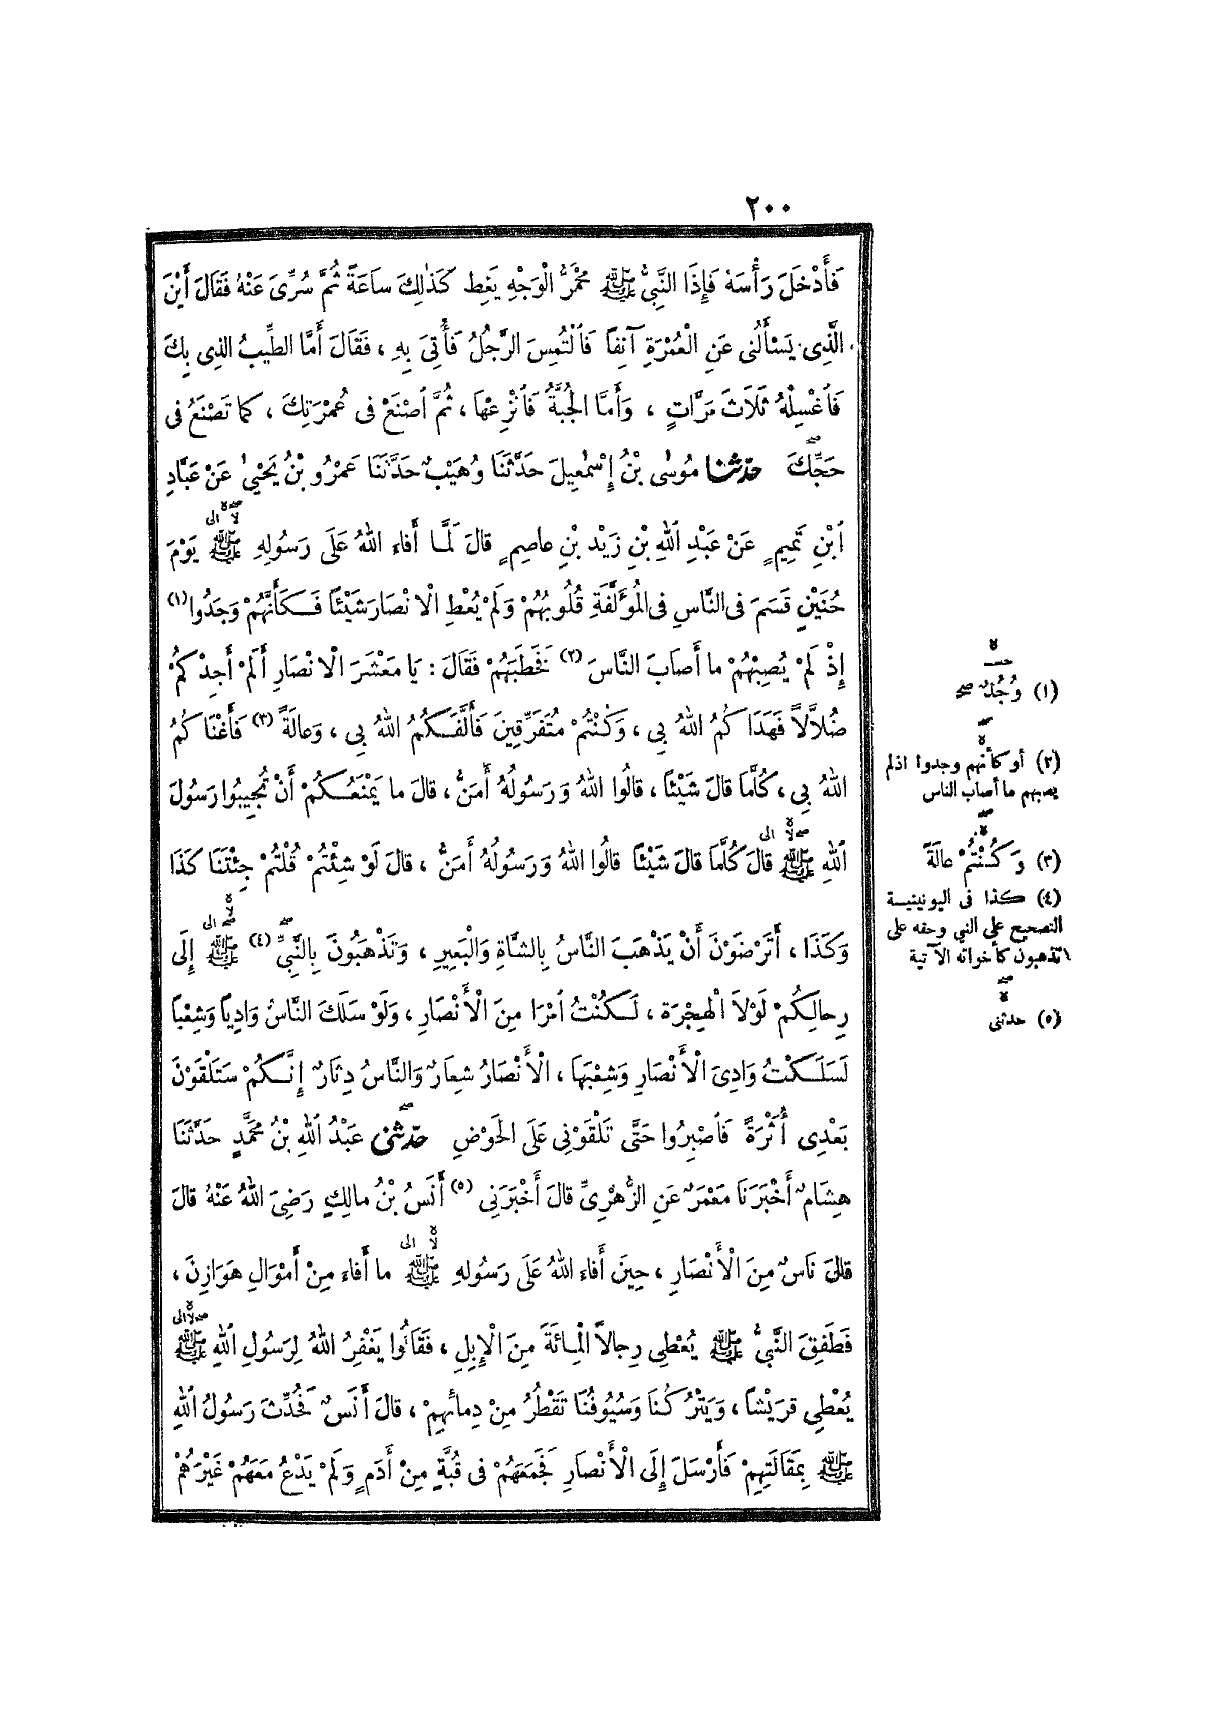 ٢٠٠
فَأَدْخَلَ رَأْسَهُ فَإِذَا النَّبِيُّ ﷺ مُحْمَرُّ الْوَجْهِ يَغِطُّ كَذٰلِكَ سَاعَةً ثُمَّ سُرِّىَ عَنْهُ فَقَالَ أَيْنَ
الَّذِى يَسْأَلُنِى عَنِ الْعُمْرَةِ آنِفًا فَٱلْتُمِسَ الرَّجُلُ فَأُتِىَ بِهِ ، فَقَالَ أَمَّا الطِّيبُ الذِى بِكَ
فَٱغْسِلْهُ ثَلَاثَ مَرَّاتٍ ، وَأَمَّا الجُبَّةُ فَٱنْزِعْهَا ، ثُمَّ ٱصْنَعْ فِى عُمْرَتِكَ ، كما تَصْنَعُ فِى
حَجِّكَ حدّثنا مُوسٰى بْنُ إِسْمٰعِيلَ حَدَّثَنَا وُهَيْبٌ حَدَّثَنَا عَمْرُو بْنُ يَحْيىٰ عَنْ عَبَّادِ
ٱبْنِ تَمِيمٍ عَنْ عَبْدِ اللهِ بْنِ زَيْدِ بْنِ عاصِمٍ قالَ لَمَّا أَفاءَ اللهُ عَلَى رَسُولِهِ ﷺ يَوْمَ
حُنَيْنٍ قَسَمَ فِى النَّاسِ فِى المُؤَلَّفَةِ قُلُوبُهُمْ وَلَمْ يُعْطِ الانْصَارَ شَيْئًا فَكَأَنَّهُمْ وَجَدُوا (١)
إِذْ لَمْ يُصِبْهُمْ ما أَصَابَ النَّاسَ (٢) فَخَطَبَهُمْ فَقَالَ : يَا مَعْشَرَ الانْصَارِ أَلَمْ أَجِدْكُمْ
ضُلَّالًا فَهَدَاكُمُ اللهُ بِى ، وَكُنْتُمْ مُتَفَرِّقِينَ فَأَلَّفَكُمُ اللهُ بِى ، وَعالَةً (٣) فَأَغْنَاكُمُ
اللهُ بِى ، كُلَّمَا قالَ شَيْئًا ، قالُوا اللهُ وَرَسُولُهُ أَمَنُّ ، قالَ ما يَمْنَعُكُمْ أَنْ تُجِيبُوا رَسُولَ
اللهِ ﷺ قالَ كُلَّمَا قالَ شَيْئًا قالُوا اللهُ وَرَسُولُهُ أَمَنُّ ، قالَ لَوْ شِئْتُمْ قُلْتُمْ جِئْتَنَا كَذَا
وَكَذَا ، أَتَرْضَوْنَ أَنْ يَذْهَبَ النَّاسُ بِالشَّاةِ وَالْبَعِيرِ ، وَتَذْهَبُونَ بِالنَّبِيِّ (٤) ﷺ إِلَى
رِحالِكُمْ لَوْلاَ الْهِجْرَة ، لَكُنْتُ ٱمْرَأً مِنَ الْأَنْصَارِ ، وَلَوْ سَلَكَ النَّاسُ وَادِيًا وَشِعْبًا
لَسَلَكْتُ وَادِىَ الْأَنْصَارِ وَشِعْبَهَا ، الْأَنْصَارُ شِعَارٌ وَالنَّاسُ دِثَارٌ إِنَّكُمْ سَتَلْقَوْنَ
بَعْدِى أُثْرَةً فَٱصْبِرُوا حَتَّى تَلْقَوْنِى عَلَى الحَوْضِ حدّثنى عَبْدُ اللهِ بْنُ مُحَمَّدٍ حَدَّثَنَا
هِشَامٌ أَخْبَرَنَا مَعْمَرٌ عَنِ الزُّهْرِىِّ قالَ أَخْبَرَنِى (٥) أَنَسُ بْنُ مالِكٍ رَضِىَ اللهُ عَنْهُ قالَ
قالَ نَاسٌ مِنَ الْأَنْصَارِ ، حِينَ أَفاءَ اللهُ عَلَى رَسُولِهِ ﷺ ما أَفاءَ مِنْ أَمْوَالِ هَوَازِنَ ،
فَطَفِقَ النَّبِىُّ ﷺ يُعْطِى رِجالاً الْمِائَةَ مِنَ الْإِبِلِ ، فَقَالُوا يَغْفِرُ اللهُ لِرَسُولِ اللهِ ﷺ
يُعْطِى قرَيْشًا ، وَيَتْرُكُنَا وَسُيُوفُنَا تَقْطُرُ مِنْ دِمائِهِمْ ، قالَ أَنَسٌ فَحُدِّثَ رَسُولُ اللهِ
ﷺ بِمَقَالَتِهِمْ فَأَرْسَلَ إِلَى الْأَنْصَارِ فَجَمَعَهُمْ فِى قُبَّةٍ مِنْ أَدَمٍ وَلَمْ يَدْعُ مَعَهُمْ غَيْرَهُمْ
(١) وُجُدٌ صح
(٢) أو كأنهم وجدوا اذلم
يصبهم ما أصاب الناس
(٣) وَكُنْتُمْ عالَةً
(٤) كذا فى اليونينية
التصحيح على النبى وحقه على
تذهبون كأخواته الآتية
(٥) حدثنى